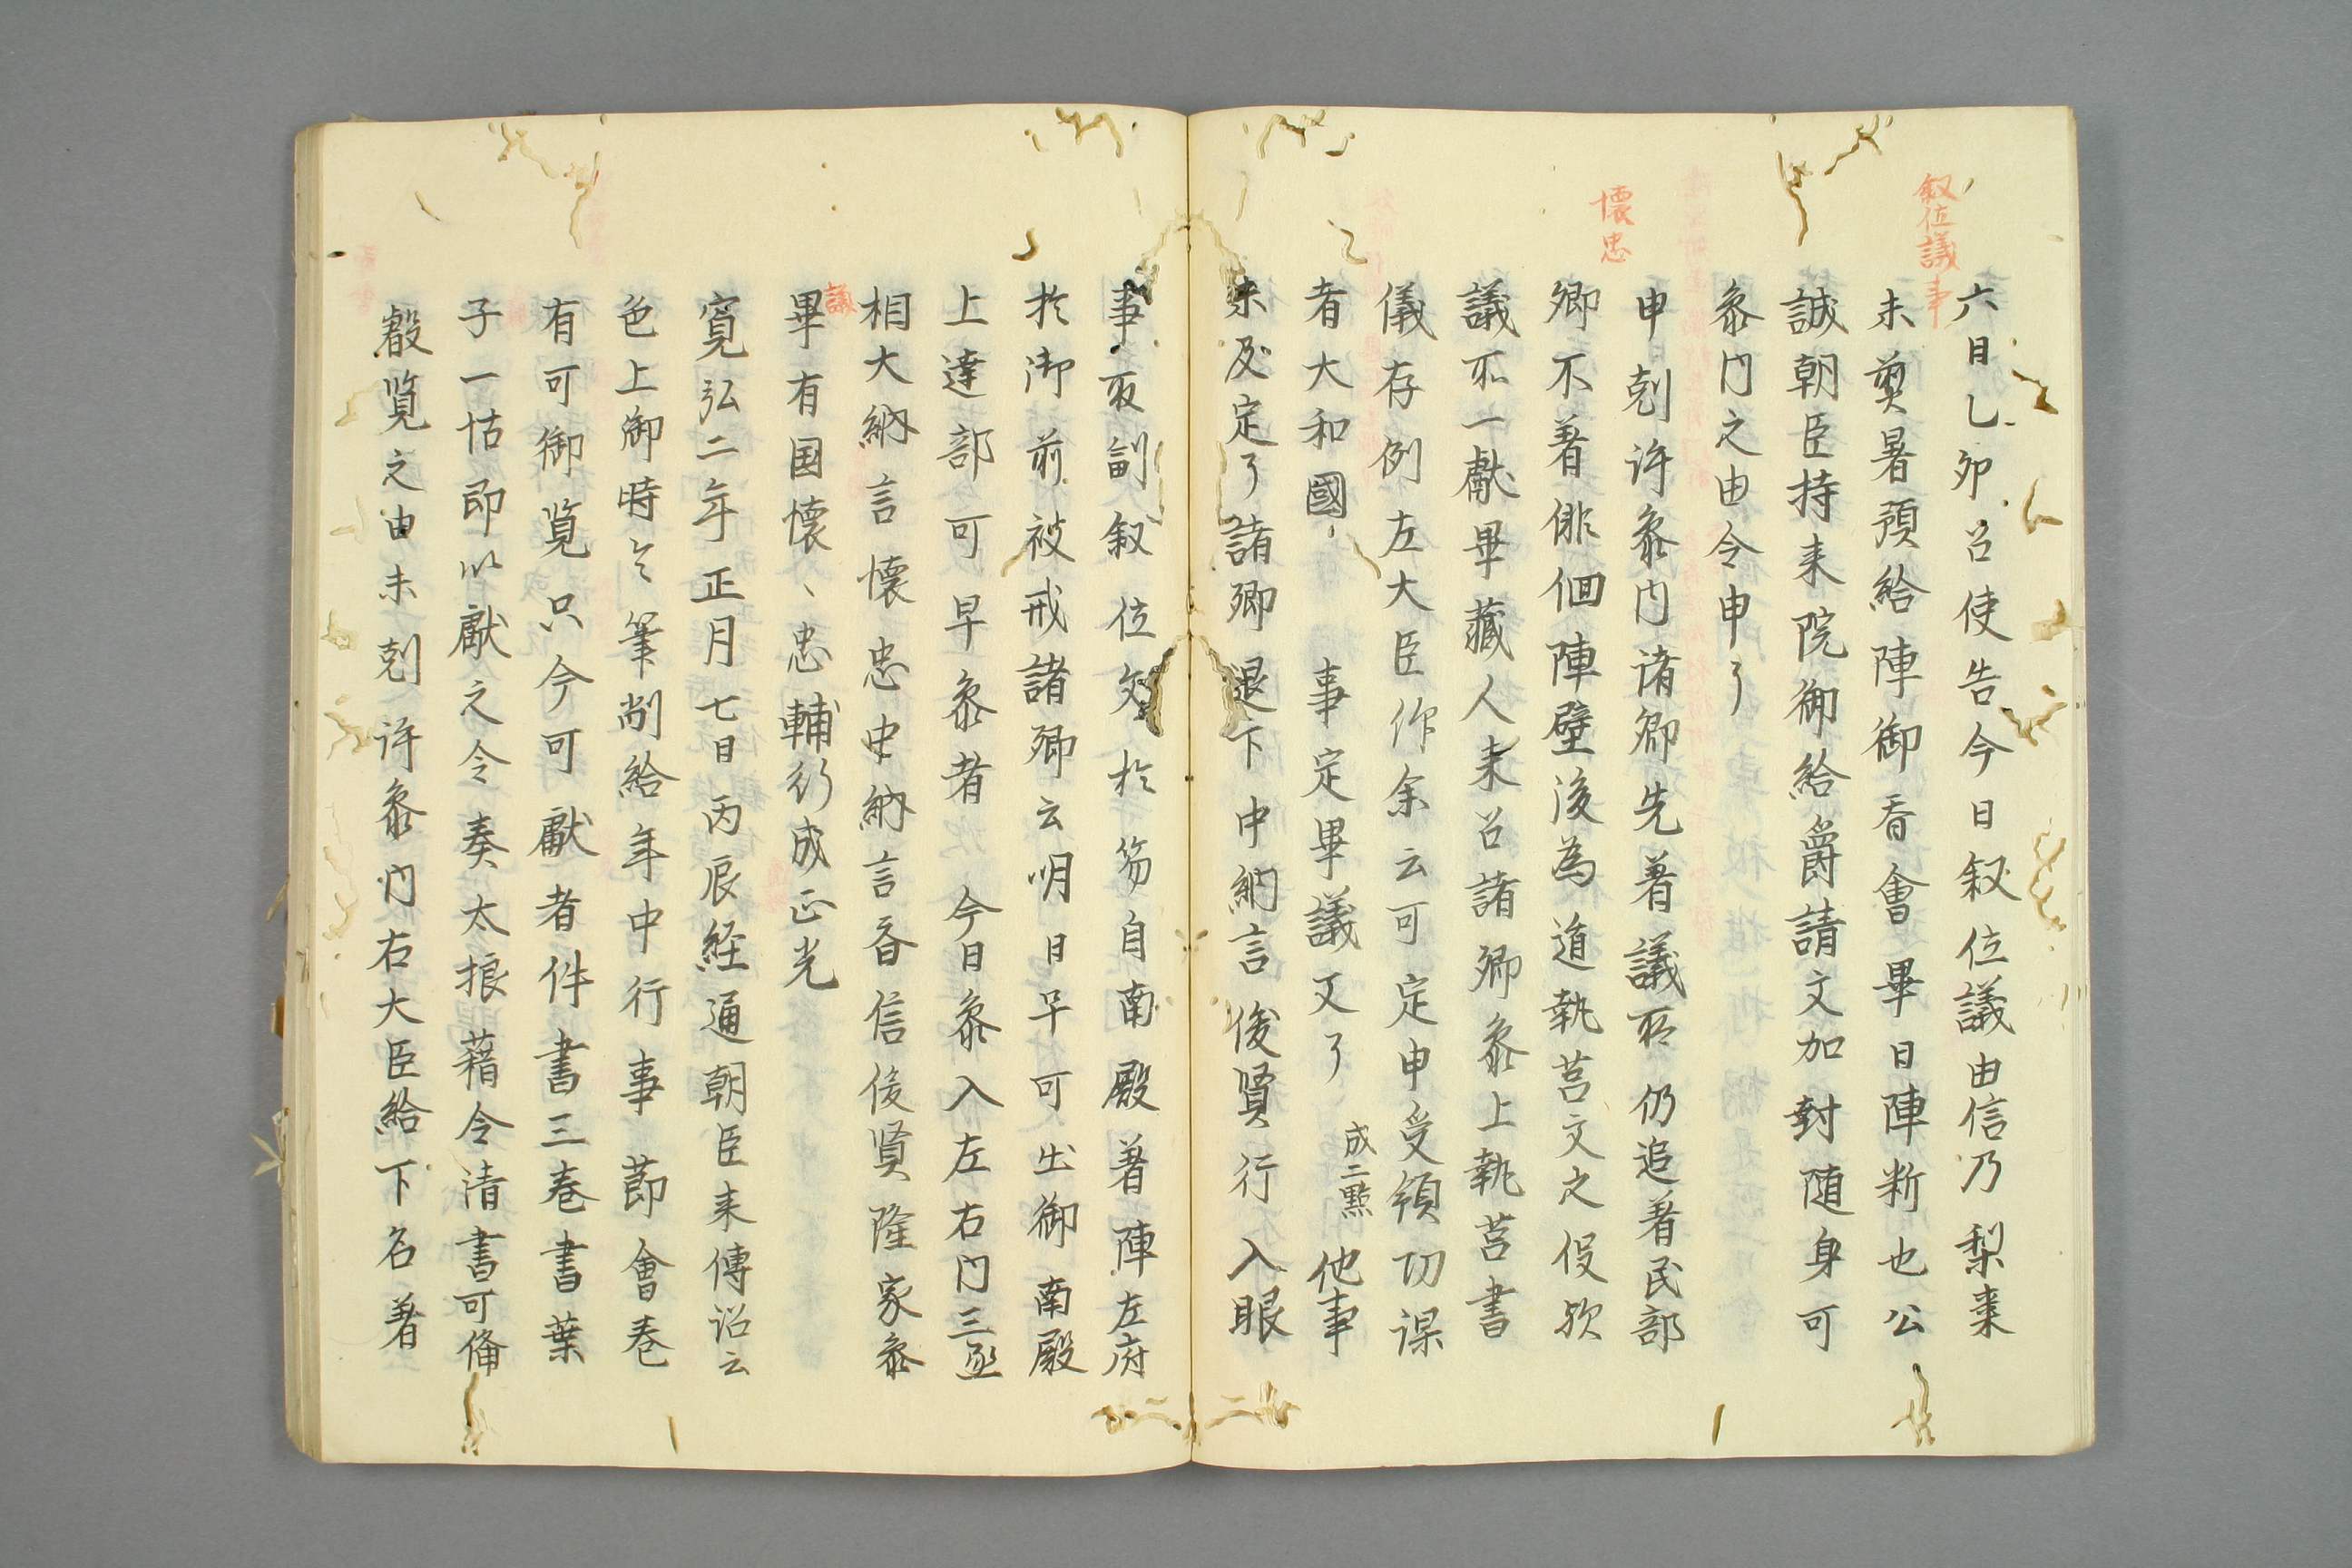 叙位議事
六日乙卯召使告今日叙位議由信乃梨棗
未奠暑預給陣御看會畢日陣断也公
誠朝臣持来院御給爵請文加封随身可
参門之由令申了
懐忠
申剋許参内諸卿先著議所仍追著民部
卿不著俳佪陣壁後為遁執莒文之役欤
議所一獻畢藏人来召諸卿参上執莒書
儀存例左大臣作余云可定申受領功課
者大和國事定畢議文了成二點他事
未及定了諸卿退下中納言俊賢行入眼
事取副叙位文於笏自南殿著陣左府
於御前被戒諸卿云明日早可出御南殿
上達部可早参者今日参入左右門三丞
相大納言懐忠中納言斉信俊賢隆家参
議
畢有国懐ヽ忠輔行成正光
寛弘二年正月七日丙辰経通朝臣来傳詔云
色上御時々筆削給年中行事節會巻
有可御覧只今可獻者件書三巻書葉
子一帖即以獻之令奏太狼藉令清書可備
叡覧之由未剋許参門右大臣給下名著